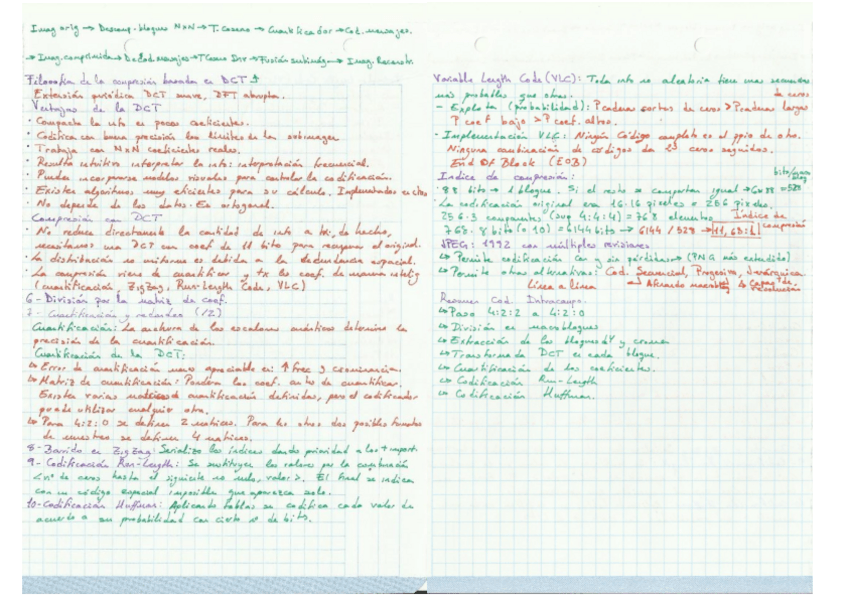 Imag orig → Descomp. bloques N×N → T. Coseno → Cuantificador → Cod. mensajes.
→ Imag. comprimida → Decod. mensajes → T Coseno Inv → Fusión subimág → Imag. Reconstr.
Filosofía de la compresión basada en DCT
Extensión periódica DCT suave, DFT abrupta.
Ventajas de la DCT
· Compacta la info en pocos coeficientes.
· Codifica con buena precisión los límites de la subimagen
· Trabaja con N×N coeficientes reales.
· Resulta intuitivo interpretar la info: interpretación frecuencial.
· Pueden incorporarse modelos visuales para controlar la codificación.
· Existen algoritmos muy eficientes para su cálculo. Implementados en chips
· No depende de los datos. Es ortogonal.
Compresión con DCT
· No reduce directamente la cantidad de info a tx, de hecho,
necesitamos una DCT con coef de 11 bits para recuperar el original.
· La distribución no uniforme es debida a la redundancia espacial.
· La compresión viene de cuantificar y tx los coef. de manera intelig
(cuantificación, ZigZag, Run-Length Code, VLC)
6- División por la matriz de coef.
7- Cuantificación y redondeo (1/2)
Cuantificación: La anchura de los escalones cuánticos determina la
precisión de la cuantificación
Cuantificación de la DCT:
↳ Error de cuantificación menos apreciable en: ↑ frec y crominancia.
↳ Matriz de cuantificación: Pondera los coef. antes de cuantificar.
Existen varias matrices de cuantificación definidas, pero el codificador
puede utilizar cualquier otra.
↳ Para 4:2:0 se definen 2 matrices. Para los otros dos posibles formatos
de muestreo se definen 4 matrices.
8- Barrido en ZigZag: Serializa los índices dando prioridad a los + import.
9- Codificación Run-Length: Se sustituyen los valores por la combinación
<nº de ceros hasta el siguiente no nulo, valor>. El final se indica
con un código especial imposible que aparezca solo.
10- Codificación Huffman: Aplicando tablas se codifica cada valor de
acuerdo a su probabilidad con cierto nº de bits.
Variable Length Code (VLC): Toda info no aleatoria tiene unas secuencias
más probables que otras.
de ceros
- Explota (probabilidad): P cadenas cortas de ceros > P cadenas largas
P coef bajo > P coef. altos.
· Implementación VLC: Ningún código completo es el ppio de otro.
Ninguna combinación de códigos da 23 ceros seguidos.
End Of Block (EOB)
Indice de compresión:
· 88 bits → 1 bloque. Si el resto se comportan igual → 6×88 = 528
· La codificación original era 16·16 píxeles = 256 píxeles.
256·3 componentes (sup 4:4:4) = 768 elementos
Índice de compresión
768 · 8 bits (o 10) = 6144 bits → 6144 / 528 → 11,63:1
JPEG: 1992 con múltiples revisiones
↳ Permite codificación con y sin pérdidas → (PNG más extendido)
↳ Permite otras alternativas: Cod. Secuencial, Progresivo, Jerárquica.
Línea a línea
Resumen Cod. Intracampo.
↳ Paso 4:2:2 a 4:2:0
↳ División en macrobloques
↳ Extracción de los bloques de Y y cromas
↳ Transformada DCT en cada bloque.
↳ Cuantificación de los coeficientes.
↳ Codificación Run-Length
↳ Codificación Huffman.